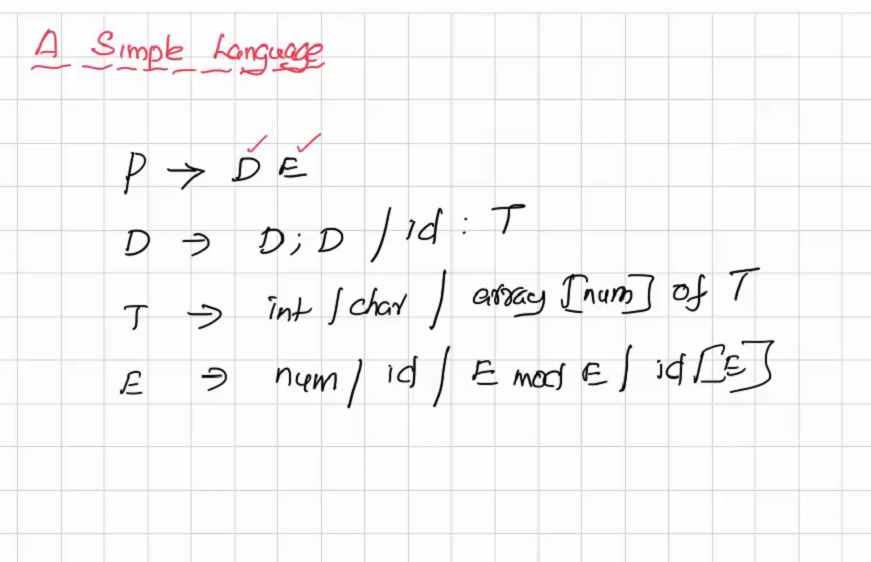 A Simple Language
P → D E
D → D; D / id : T
T → int / char / array [num] of T
E → num / id / E mod E / id [E]